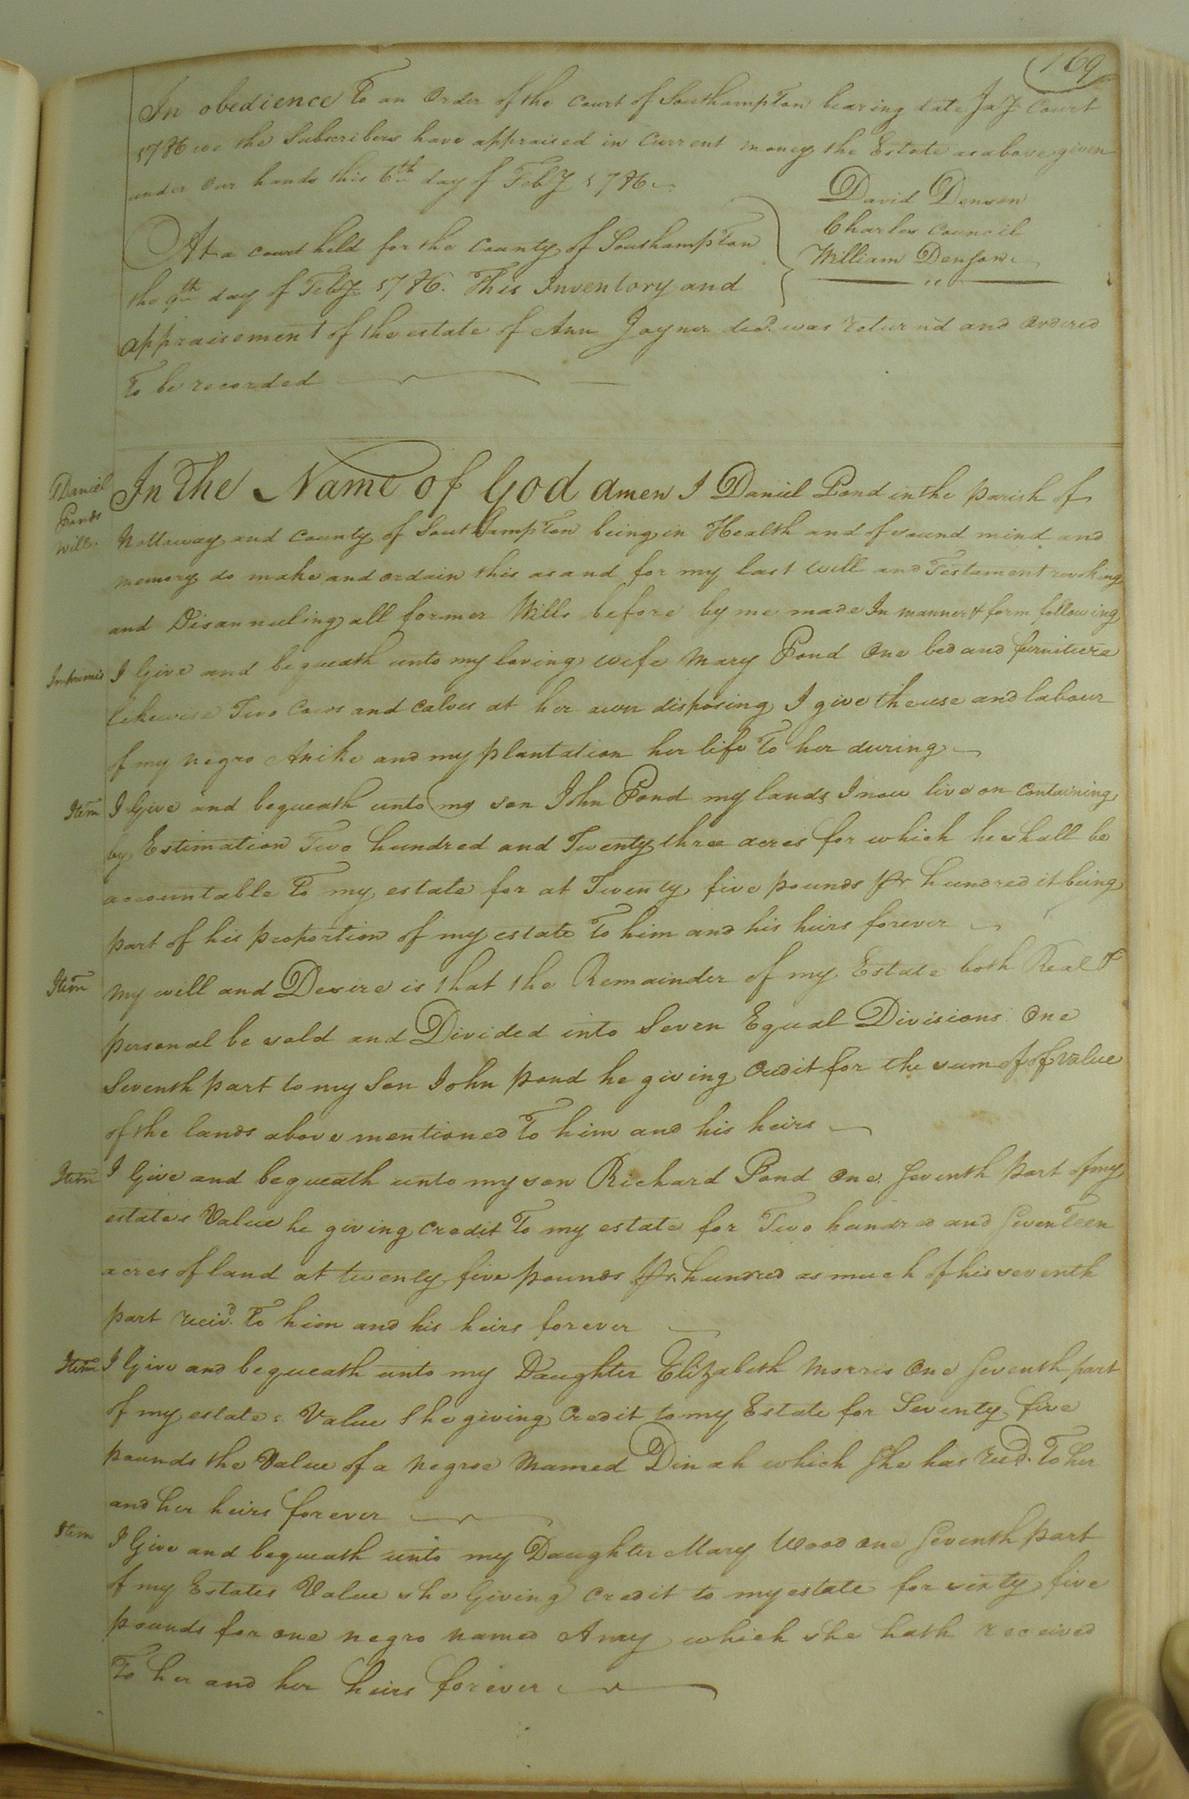 169
In obedience To an Order of the Court of Southampton bearing date Jay Court
1786 we the Subscribers have appraised in Current money the Estate as above given
under our hands this 6th day of Feby 1786
David Denson
Charles Council
William Denson
At a court held for the County of Southampton
the 9th day of Feby 1786. This Inventory and
appraisement of the estate of Ann Joyner decd. was returnd and ordered
To be recorded
Daniel
Ponds
Will
In The Name of God Amen I Daniel Pond in the parish of
Nottoway and County of Southampton being in Health and of sound mind and
memory do make and ordain this as and for my last will and Testament revoking
and Disannuling all former Wills before by me made In manner & form following
Imprimis I Give and bequeath unto my loving wife Mary Pond One bed and furniture
likewise Two Cows and Calves at her own disposing I give the use and labour
of my negro Anike and my plantation her life To her during
Item I Give and bequeath unto my son John Pond my lands I now live on Containing
by Estimation Two hundred and Twenty three acres for which he shall be
accountable To my estate for at Twenty five pounds pr hundred it being
part of his proportion of my estate To him and his heirs forever
Item my will and Desire is that the Remainder of my Estate both Real &
personal be sold and Divided into Seven Equal Divisions One
Seventh part to my Son John pond he giving Credit for the sum of of value
of the lands above mentioned To him and his heirs
Item I Give and bequeath unto my son Richard Pond One Seventh Part of my
estates Value he giving Credit To my estate for Two hundred and SevenTeen
acres of land at twenty five pounds pr. hundred as much of his seventh
part reciv.d To him and his heirs forever
Item I Give and bequeath unto my Daughter Elizabeth Morris One Seventh part
of my estates Value She giving Credit to my Estate for Seventy five
pounds the Value of a negroe Named Dinah which She has Recd. To her
and her heirs forever
Item I Give and bequeath unto my Daughter Mary Wood one Seventh part
of my Estates Value she Giving Credit to my estate for sixty five
pounds for one negro named Amy which she hath received
To her and her heirs forever